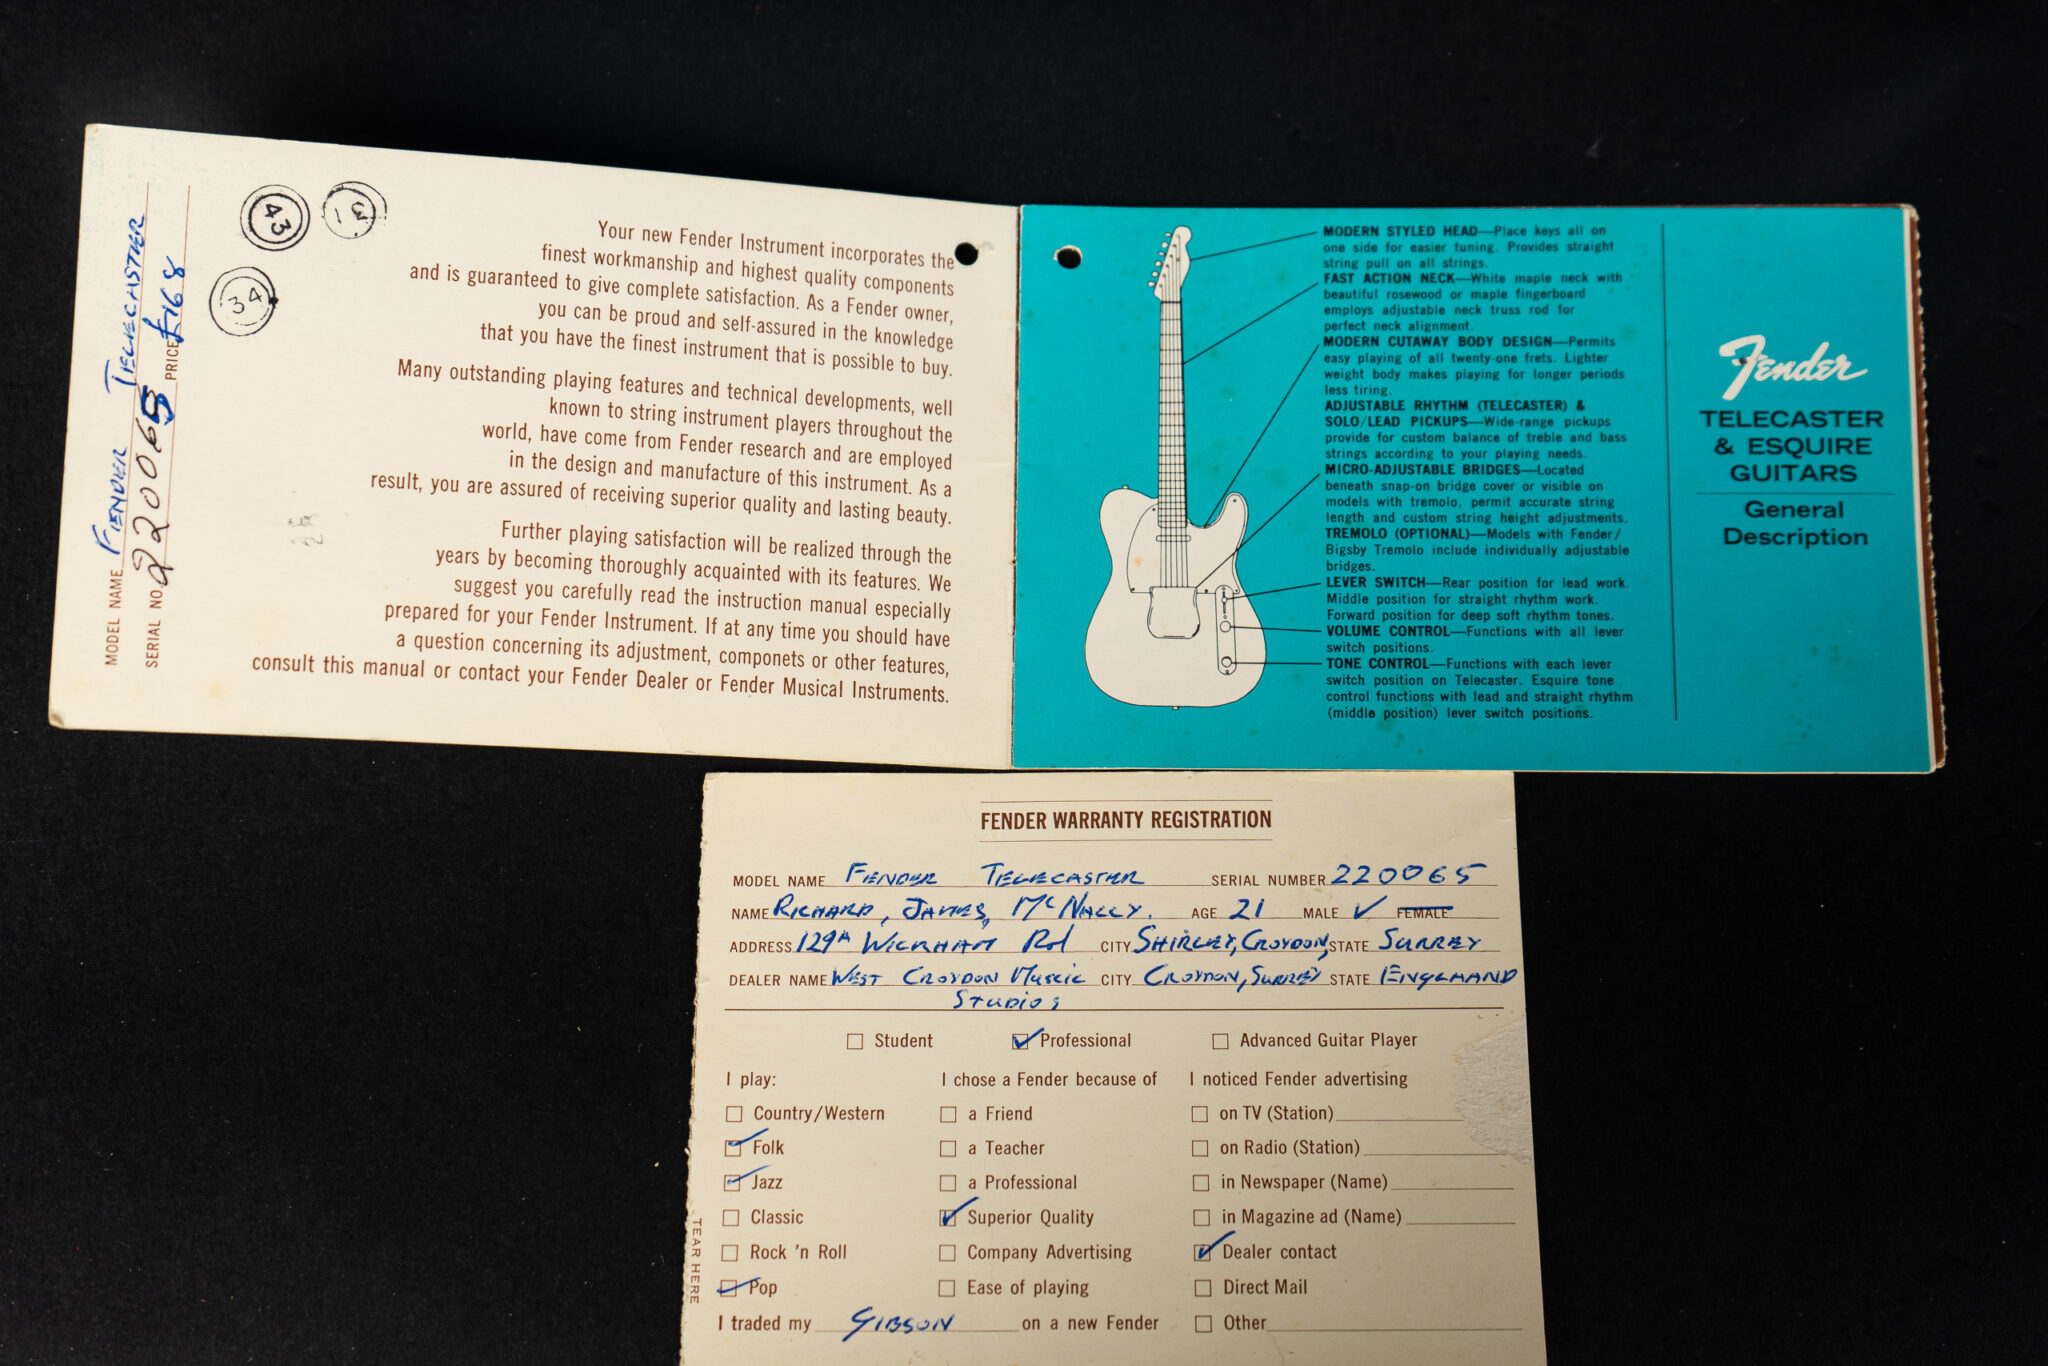 MODEL NAME FENDER TELECASTER
SERIAL NO. 220065 PRICE £168
43
31
34
Your new Fender Instrument incorporates the
finest workmanship and highest quality components
and is guaranteed to give complete satisfaction. As a Fender owner,
you can be proud and self-assured in the knowledge
that you have the finest instrument that is possible to buy.
Many outstanding playing features and technical developments, well
known to string instrument players throughout the
world, have come from Fender research and are employed
in the design and manufacture of this instrument. As a
result, you are assured of receiving superior quality and lasting beauty.
Further playing satisfaction will be realized through the
years by becoming thoroughly acquainted with its features. We
suggest you carefully read the instruction manual especially
prepared for your Fender Instrument. If at any time you should have
a question concerning its adjustment, componets or other features,
consult this manual or contact your Fender Dealer or Fender Musical Instruments.
MODERN STYLED HEAD—Place keys all on
one side for easier tuning. Provides straight
string pull on all strings.
FAST ACTION NECK—White maple neck with
beautiful rosewood or maple fingerboard
employs adjustable neck truss rod for
perfect neck alignment.
MODERN CUTAWAY BODY DESIGN—Permits
easy playing of all twenty-one frets. Lighter
weight body makes playing for longer periods
less tiring.
ADJUSTABLE RHYTHM (TELECASTER) &
SOLO/LEAD PICKUPS—Wide-range pickups
provide for custom balance of treble and bass
strings according to your playing needs.
MICRO-ADJUSTABLE BRIDGES—Located
beneath snap-on bridge cover or visible on
models with tremolo, permit accurate string
length and custom string height adjustments.
TREMOLO (OPTIONAL)—Models with Fender/
Bigsby Tremolo include individually adjustable
bridges.
LEVER SWITCH—Rear position for lead work.
Middle position for straight rhythm work.
Forward position for deep soft rhythm tones.
VOLUME CONTROL—Functions with all lever
switch positions.
TONE CONTROL—Functions with each lever
switch position on Telecaster. Esquire tone
control functions with lead and straight rhythm
(middle position) lever switch positions.
Fender
TELECASTER
& ESQUIRE
GUITARS
General
Description
FENDER WARRANTY REGISTRATION
MODEL NAME FENDER TELECASTER SERIAL NUMBER 220065
NAME RICHARD, JAMES, McNALLY. AGE 21 MALE ✓ FEMALE
ADDRESS 129A WICKHAM Rd CITY SHIRLEY, CROYDON, STATE SURREY
DEALER NAME WEST CROYDON MUSIC CITY CROYDON, SURREY STATE ENGLAAND
STUDIOS
Student Professional Advanced Guitar Player
I play: I chose a Fender because of I noticed Fender advertising
Country/Western a Friend on TV (Station)
Folk a Teacher on Radio (Station)
Jazz a Professional in Newspaper (Name)
Classic Superior Quality in Magazine ad (Name)
Rock 'n Roll Company Advertising Dealer contact
Pop Ease of playing Direct Mail
I traded my GIBSON on a new Fender Other
TEAR HERE